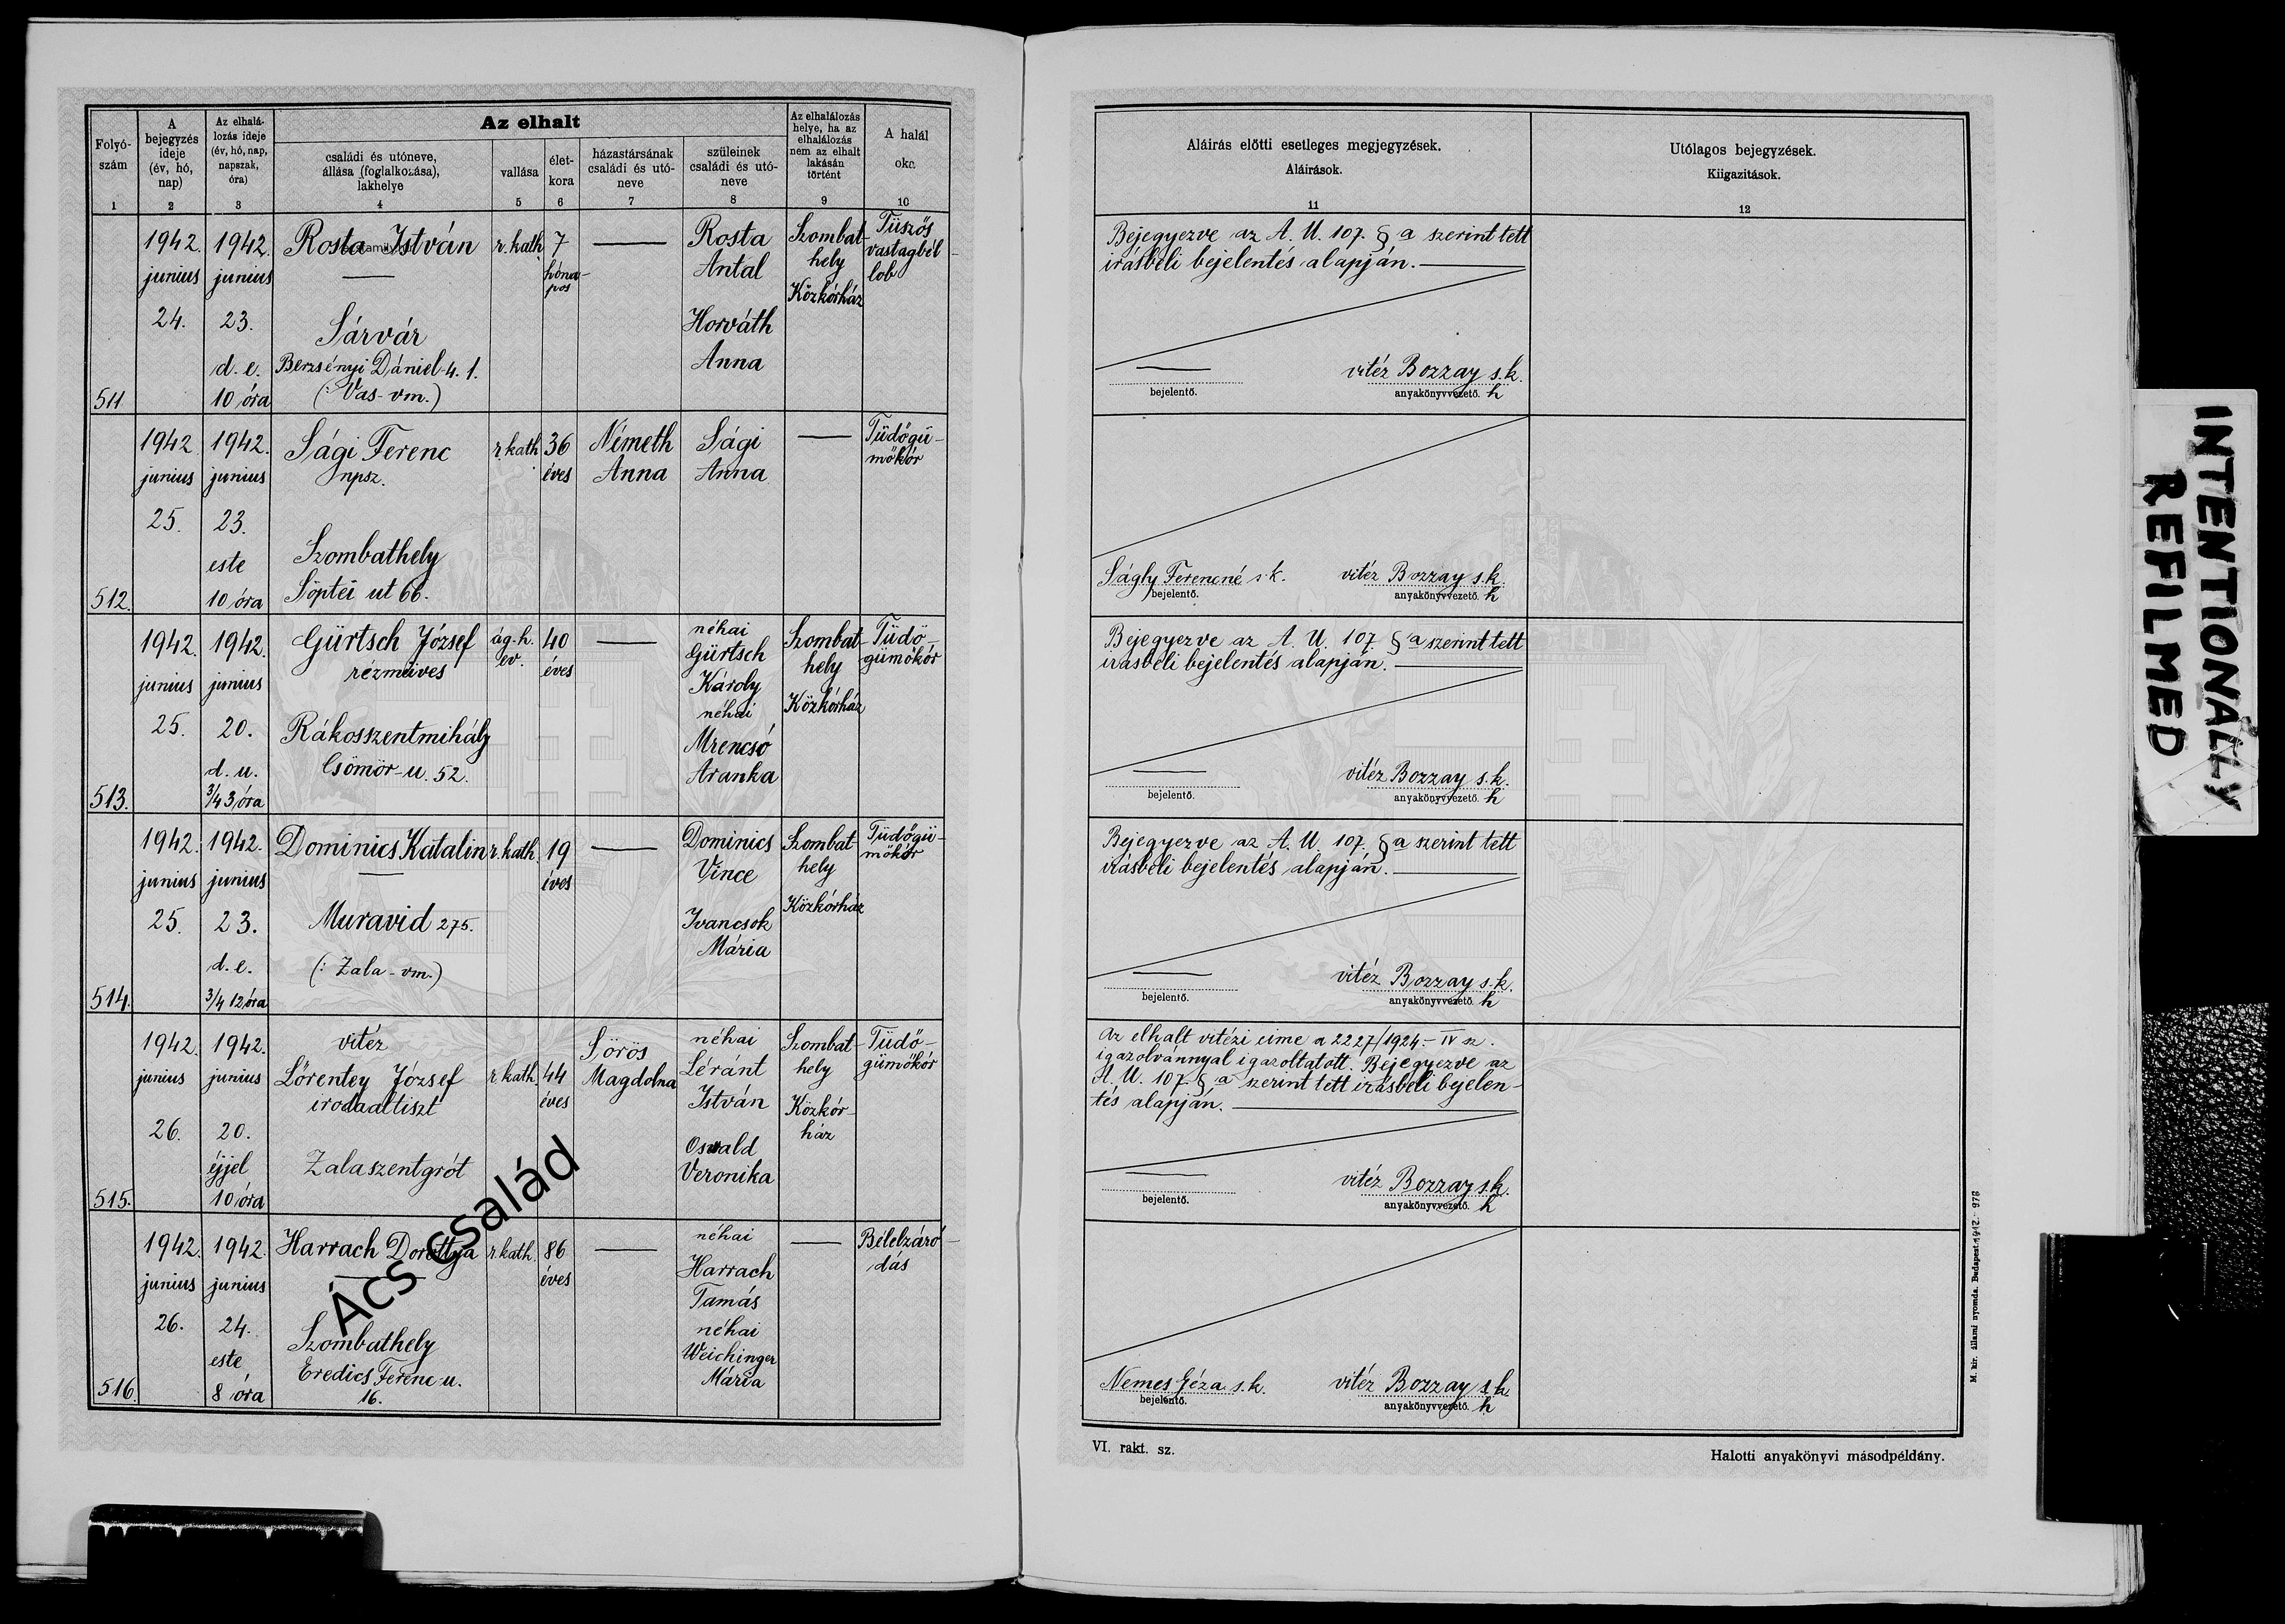 Folyó-
szám
A
bejegyzés
ideje
(év, hó,
nap)
Az elhalá-
lozás ideje
(év, hó, nap,
napszak,
óra)
Az elhalt
családi és utóneve,
állása (foglalkozása),
lakhelye
vallása
élet-
kora
házastársának
családi és utó-
neve
szüleinek
családi és utó-
neve
Az elhalálozás
helye, ha az
elhalálozás
nem az elhalt
lakásán
történt
A halál
oka
1 2 3 4 5 6 7 8 9 10
511
1942.
junius
24.
1942.
junius
23.
d. e.
10 óra
Rosta István
Sárvár
Berzsényi Dániel-u. 1.
(: Vas-vm.)
r. kath.
7
hóna-
pos
Rosta
Antal
Horváth
Anna
Szombat-
hely
Közkórház
Tüszős
vastagbél-
lob
512.
1942.
junius
25.
1942.
junius
23.
este
10 óra
Sági Ferenc
npsz.
Szombathely
Söptei ut 66.
r. kath.
36
éves
Németh
Anna
Sági
Anna
Tüdőgü-
mőkór
513.
1942.
junius
25.
1942.
junius
20.
d. u.
3/4 3 óra
Gürtsch József
rézmüves
Rákosszentmihály
Csömör-u. 52.
ág. h.
ev.
40
éves
néhai
Gürtsch
Károly
néhai
Mrencsó
Aranka
Szombat-
hely
Közkórház
Tüdő-
gümőkór
514.
1942.
junius
25.
1942.
junius
23.
d. e.
3/4 12 óra
Dominics Katalin
Muravid 275.
(: Zala-vm.)
r. kath.
19
éves
Dominics
Vince
Ivancsok
Mária
Szombat-
hely
Közkórház
Tüdőgü-
mőkór
515.
1942.
junius
26.
1942.
junius
20.
éjjel
10 óra
vitéz
Lőrentey József
irodaaltiszt
Zalaszentgrót
r. kath.
44
éves
Sörös
Magdolna
néhai
Léránt
István
Oswald
Veronika
Szombat-
hely
Közkór-
ház
Tüdő-
gümőkór
516.
1942.
junius
26.
1942.
junius
24.
este
8 óra
Harrach Dorottya
Szombathely
Eredics Ferenc-u.
16.
r. kath.
86
éves
néhai
Harrach
Tamás
néhai
Weichinger
Mária
Bélelzáró-
dás
Ács család
Aláirás előtti esetleges megjegyzések.
Aláirások.
11
Utólagos bejegyzések.
Kiigazitások.
12
Bejegyezve az A. U. 107. § a szerint tett
irásbeli bejelentés alapján.
vitéz Bozzay s.k.
bejelentő.
anyakönyvvezető. h
Sághy Ferencné s.k. vitéz Bozzay s.k.
bejelentő.
anyakönyvvezető. h
Bejegyezve az A. U. 107. § a szerint tett
irásbeli bejelentés alapján.
vitéz Bozzay s.k.
bejelentő.
anyakönyvvezető. h
Bejegyezve az A. U. 107. § a szerint tett
irásbeli bejelentés alapján.
vitéz Bozzay s.k.
bejelentő.
anyakönyvvezető. h
Az elhalt vitézi cime a 2227/1924.-IV sz.
igazolvánnyal igazoltatott. Bejegyezve az
A. U. 107. § a szerint tett irásbeli bejelen-
tés alapján.
vitéz Bozzay s.k.
bejelentő.
anyakönyvvezető. h
Nemes Géza s.k. vitéz Bozzay s.k.
bejelentő.
anyakönyvvezető. h
VI. rakt. sz.
Halotti anyakönyvi másodpéldány.
M. kir. állami nyomda. Budapest. 1942. - 978
INTENTIONALLY
REFILMED